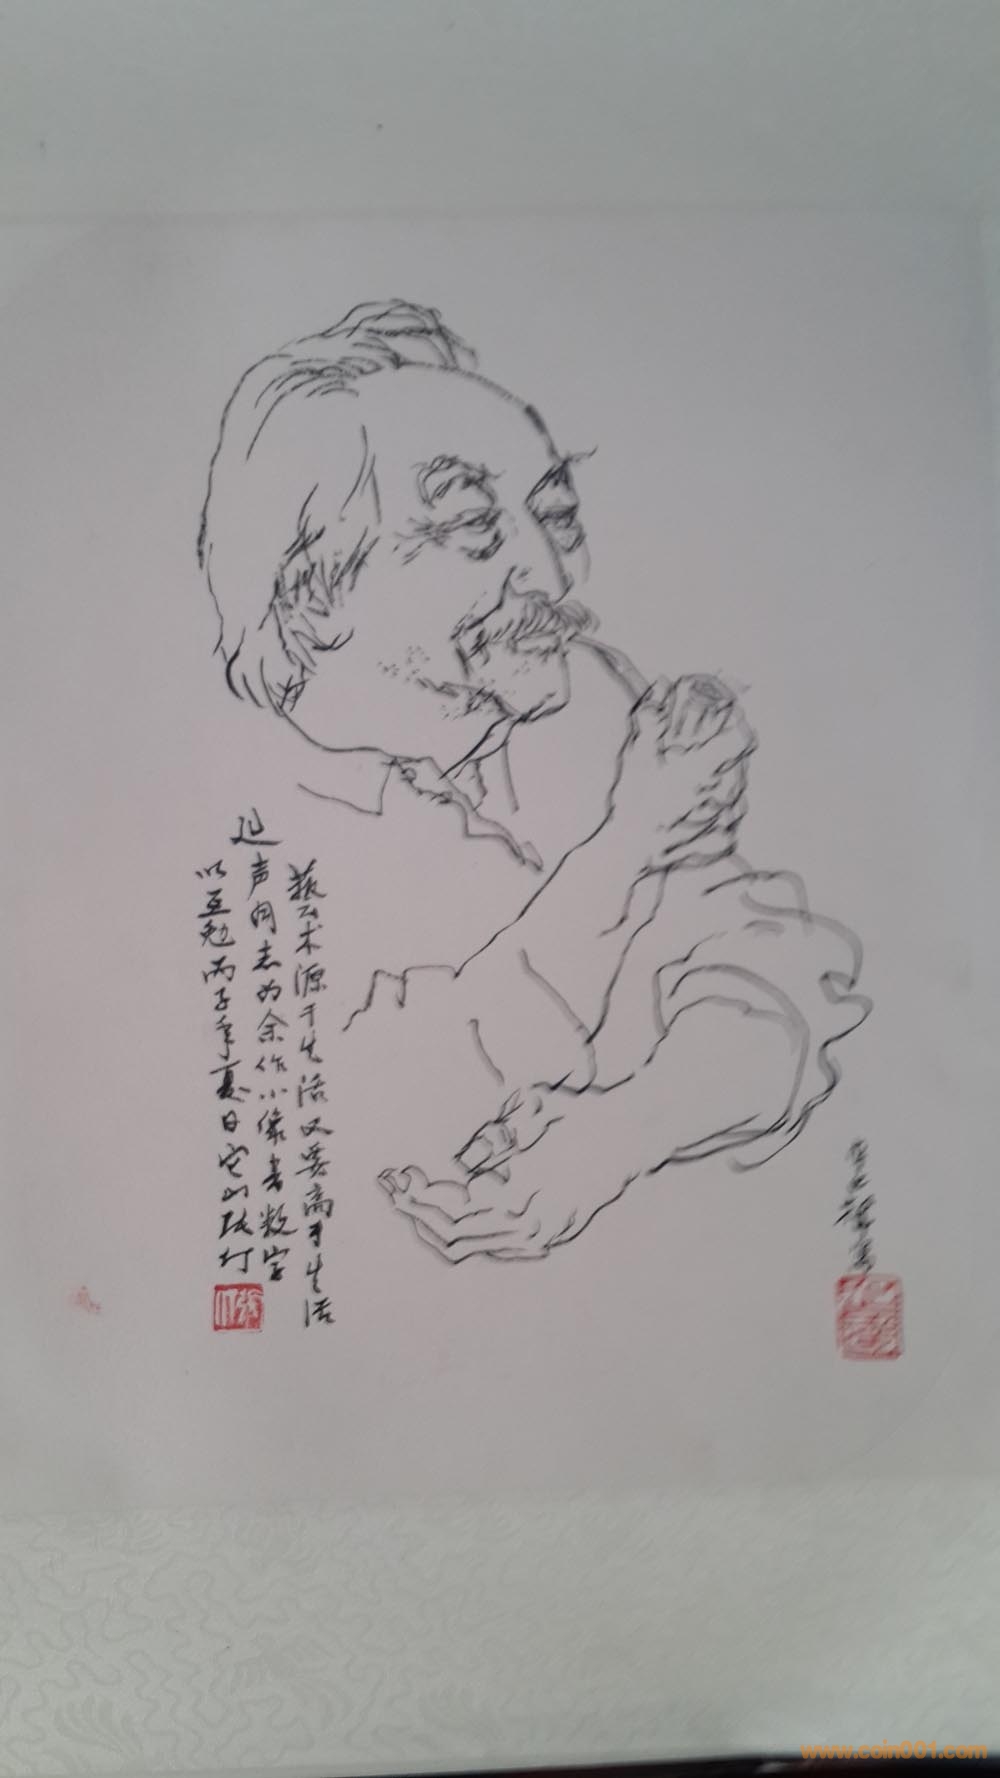 艺术源于生活又要高于生活
延声同志为余作小像书数字
以互勉丙子年夏日它山张仃
张仃
www.coin001.com